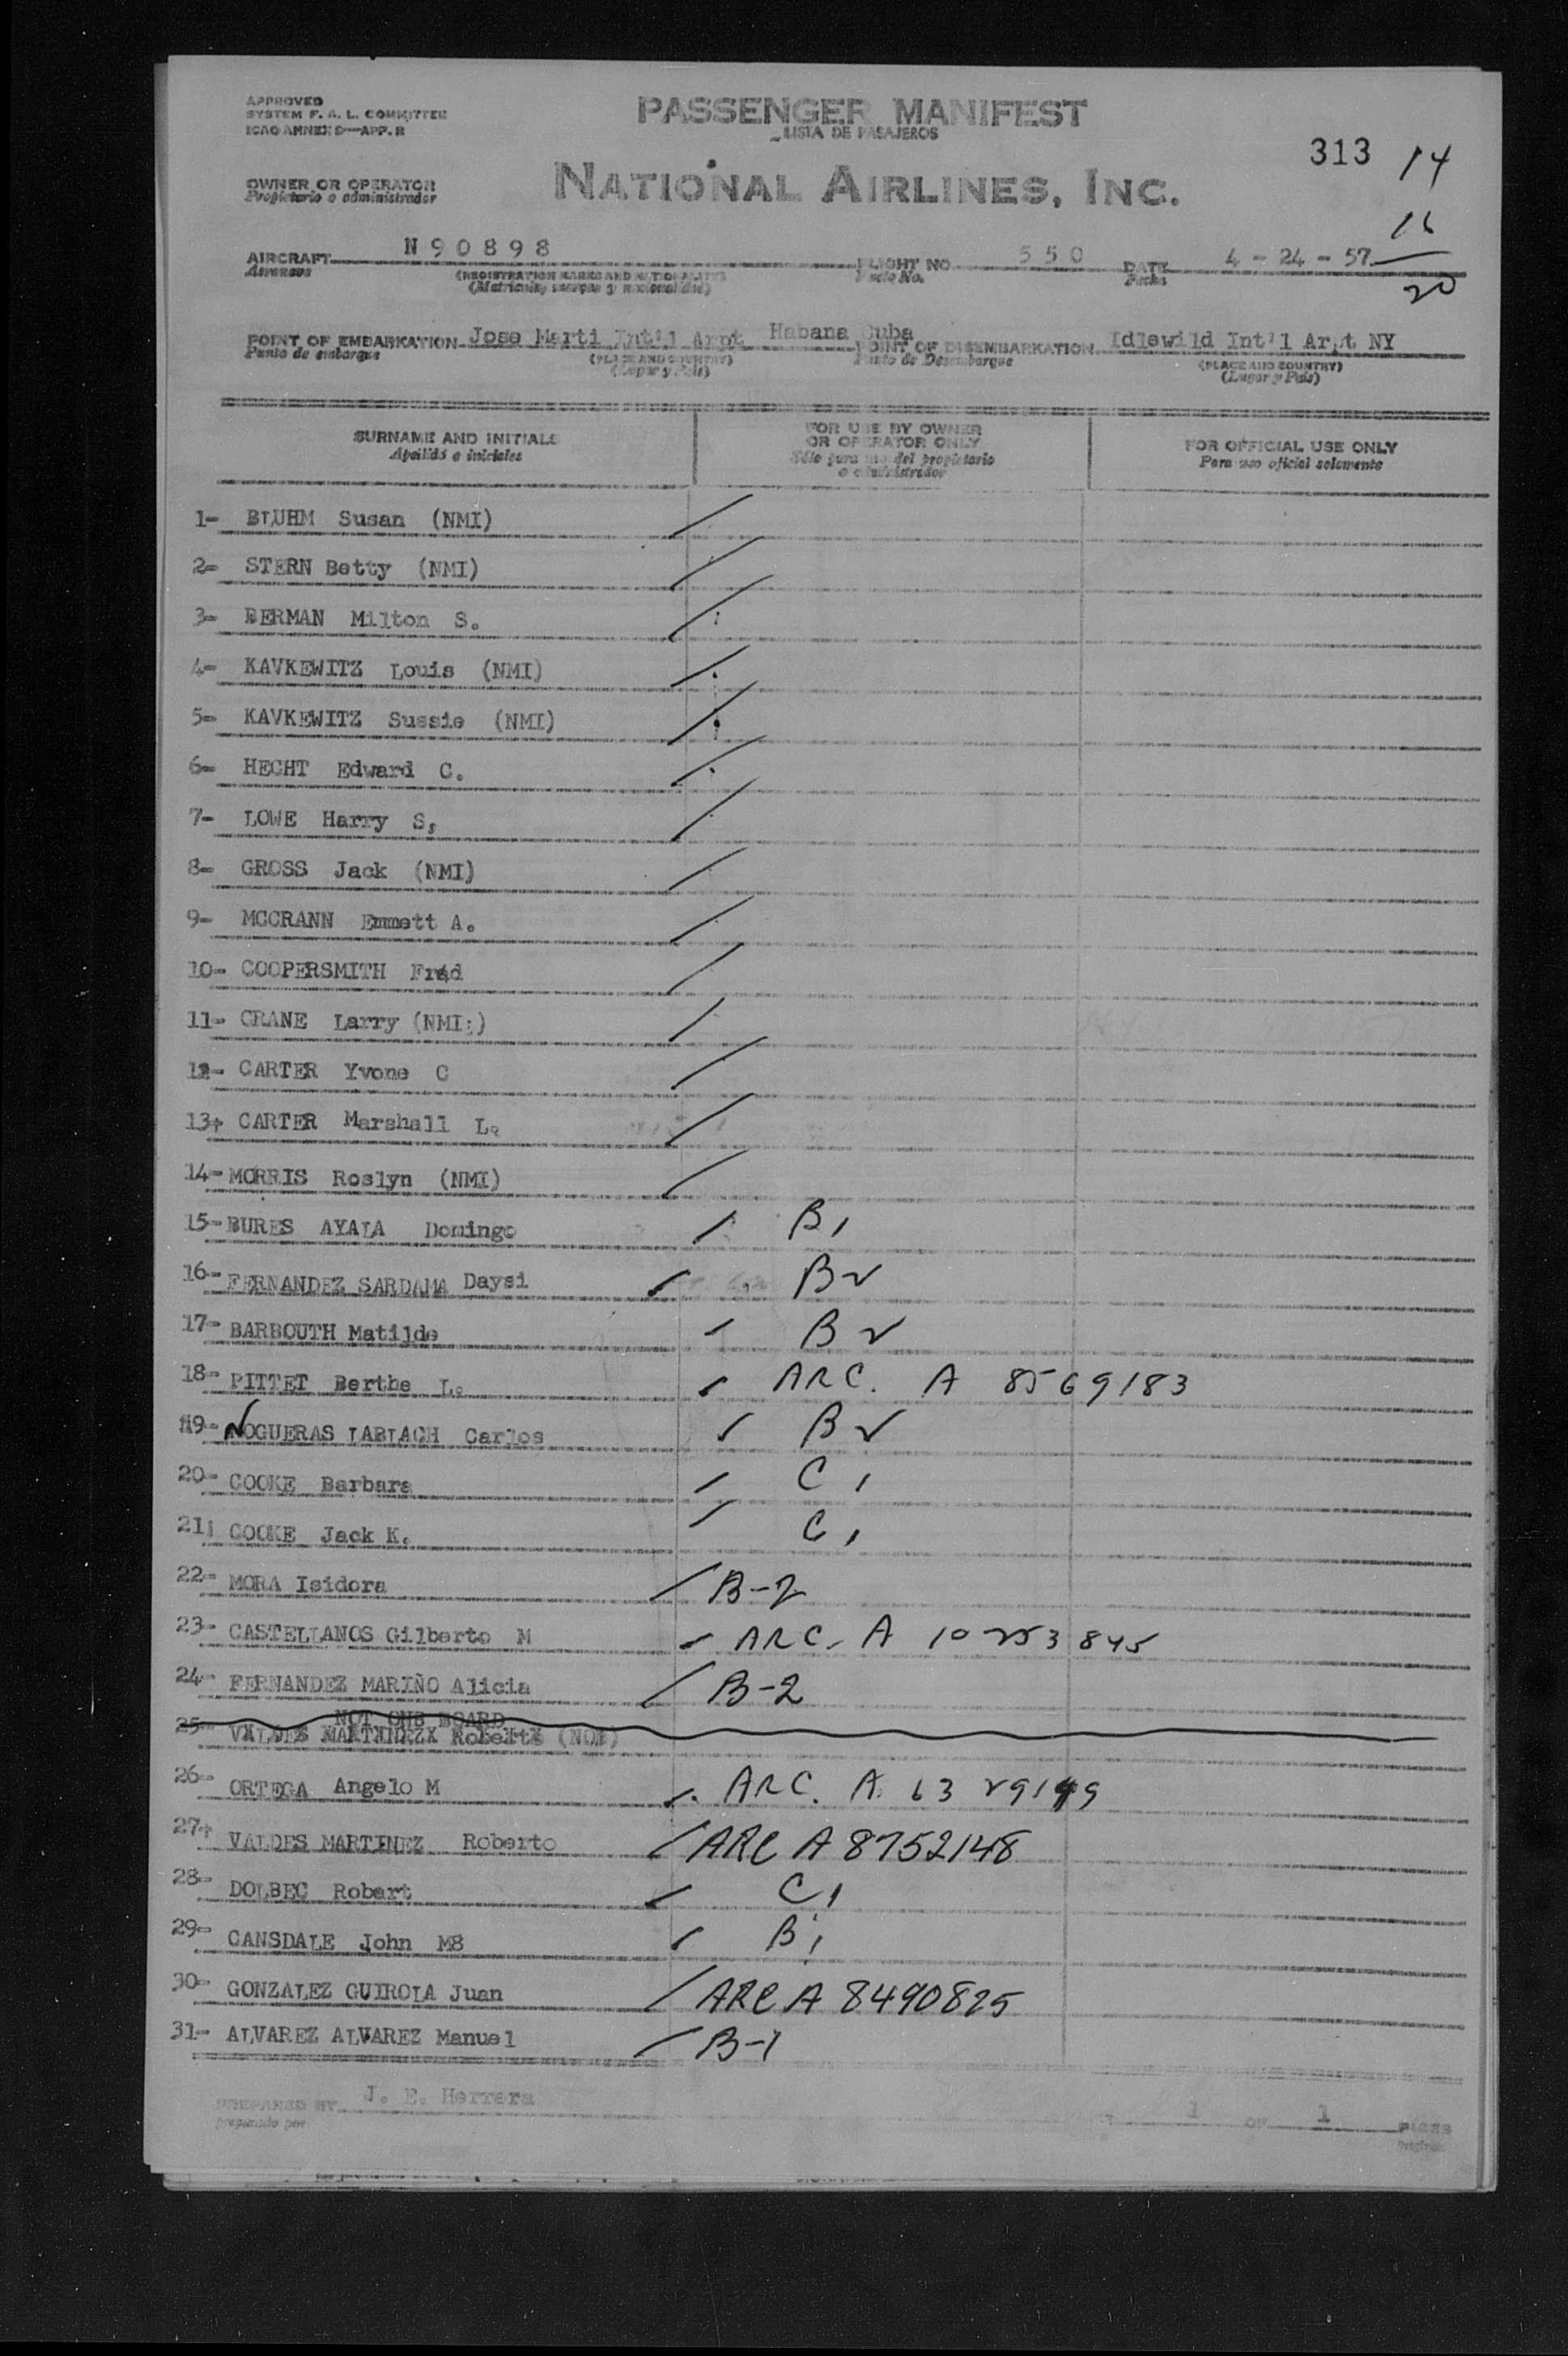 APPROVED
SYSTEM F. A. L. COMMITTEE
ICAO ANNEX 9—APP. R
PASSENGER MANIFEST
LISTA DE PASAJEROS
313 14
OWNER OR OPERATOR
Propietario o administrador
NATIONAL AIRLINES, INC.
16
AIRCRAFT N 9 0 8 9 8 FLIGHT NO. 5 5 0 DATE 4 - 24 - 57
Aeronave (REGISTRATION MARKS AND NATIONALITY) Vuelo No. Fecha 20
(Matricula, marcas y nacionalidad)
POINT OF EMBARKATION Jose Marti Int'l Arpt Habana Cuba POINT OF DISEMBARKATION Idlewild Int'l Arpt NY
Punto de embarque (PLACE AND COUNTRY) Punto de Desembarque (PLACE AND COUNTRY)
(Lugar y País) (Lugar y País)
SURNAME AND INITIALS FOR USE BY OWNER OR OPERATOR ONLY FOR OFFICIAL USE ONLY
Apellido e iniciales Sólo para uso del propietario o administrador Para uso oficial solamente
1- BLUHM Susan (NMI)
2- STERN Betty (NMI)
3- BERMAN Milton S.
4- KAVKEWITZ Louis (NMI)
5- KAVKEWITZ Sussie (NMI)
6- HECHT Edward C.
7- LOWE Harry S;
8- GROSS Jack (NMI)
9- MCCRANN Emmett A.
10- COOPERSMITH Fred
11- CRANE Larry (NMI:)
12- CARTER Yvone C
13+ CARTER Marshall L.
14- MORRIS Roslyn (NMI)
15- BURES AYALA Domingo B1
16- FERNANDEZ SARDAMA Daysi B2
17- BARBOUTH Matilde B2
18- PITTET Berthe L. ARC. A 8569183
19- NOGUERAS LABLACH Carlos B2
20- COOKE Barbara C 1
21; COOKE Jack K. C 1
22- MORA Isidora B-2
23- CASTELLANOS Gilberto M ARC. A 10253845
24- FERNANDEZ MARIÑO Alicia B-2
NOT ON BOARD
25- VALDES MARTINEZ Robert
26- ORTEGA Angelo M ARC. A 63 29149
27+ VALDES MARTINEZ Roberto ARC A 8752148
28- DOLBEC Robert C1
29- CANSDALE John M8 B1
30- GONZALEZ GUIROLA Juan ARC A 8490825
31- ALVAREZ ALVAREZ Manuel B-1
PREPARED BY J. E. Herrera
preparado por
1 OF 1 PAGES